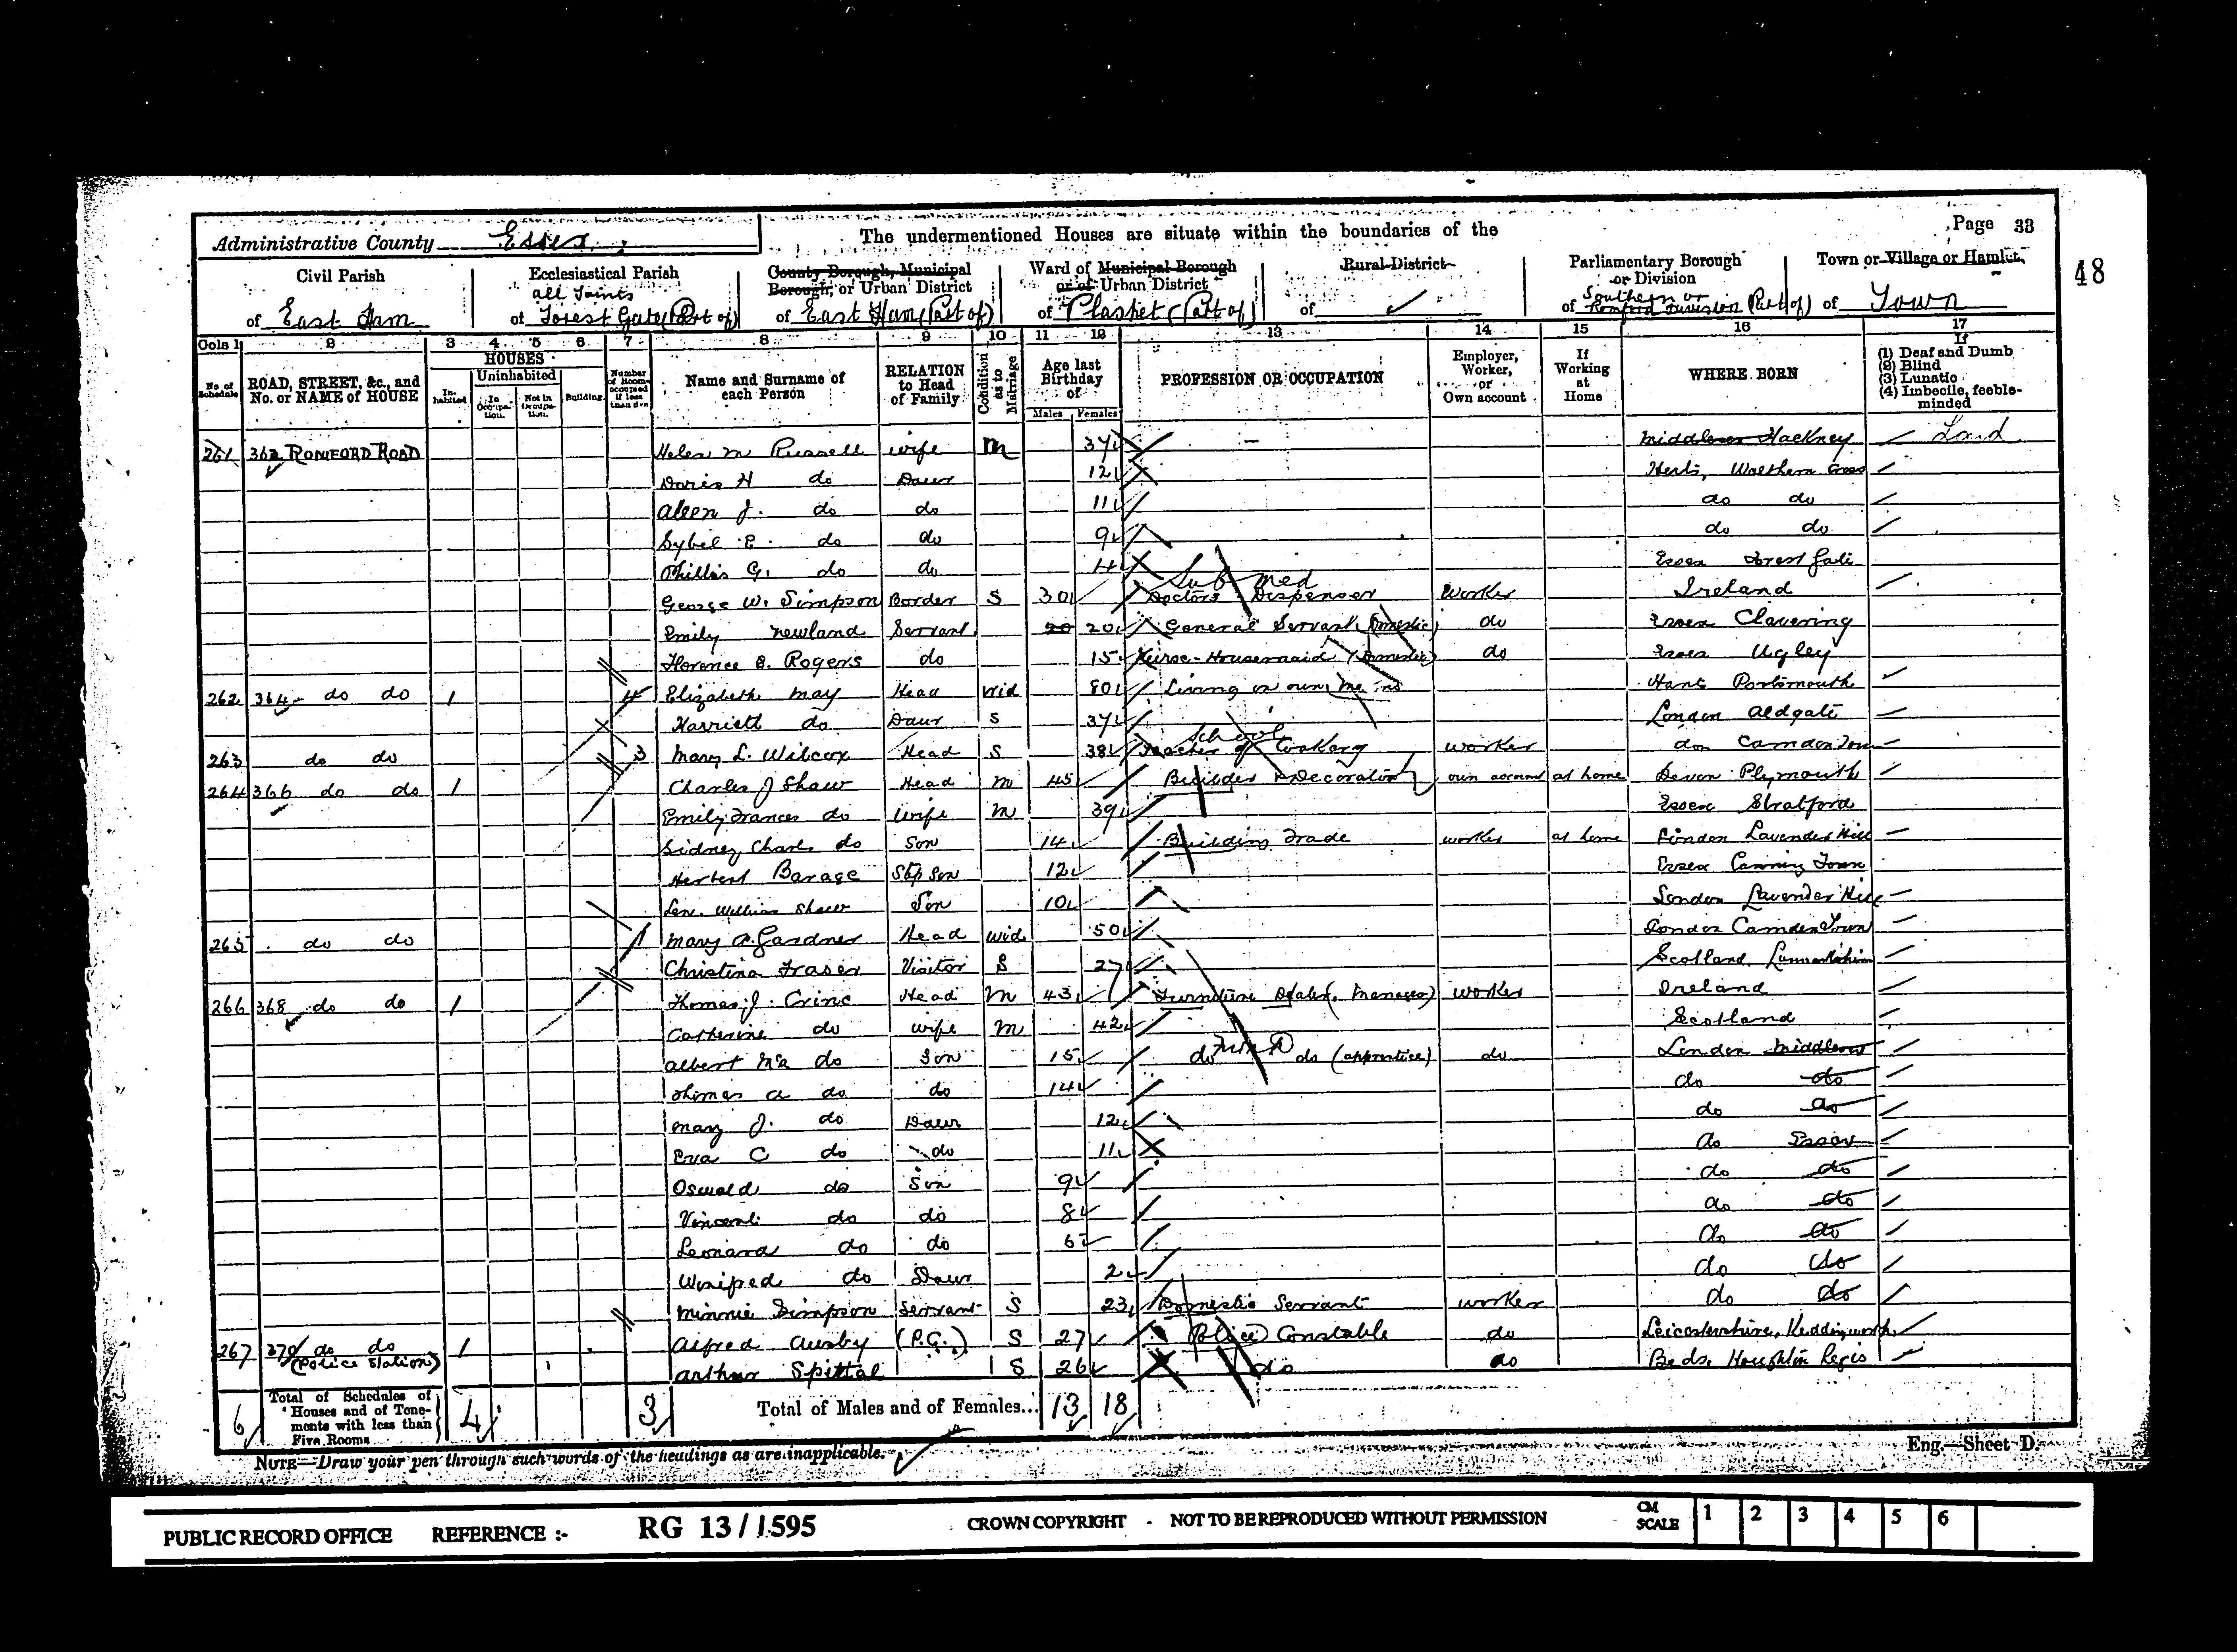 Page 33
48
Administrative County Essex
The undermentioned Houses are situate within the boundaries of the
Civil Parish
of East Ham
Ecclesiastical Parish
all Saints
of Forest Gate (Part of)
County Borough, Municipal
Borough, or Urban District
of East Ham (Part of)
Ward of Municipal Borough
or of Urban District
of Plashet (Part of)
Rural District
of
Parliamentary Borough
or Division
Southern or
of Romford Division (Part of)
Town or Village or Hamlet,
of Town
Cols 1 2 3 4 5 6 7 8 9 10 11 12 13 14 15 16 17
No. of Schedule
ROAD, STREET, &c., and No. or NAME of HOUSE
HOUSES
Inhabited
Uninhabited
In Occupation.
Not in Occupation.
Building.
Number of Rooms occupied if less than five
Name and Surname of each Person
RELATION to Head of Family
Condition as to Marriage
Age last Birthday of
Males Females
PROFESSION OR OCCUPATION
Employer, Worker, or Own account
If Working at Home
WHERE BORN
If
(1) Deaf and Dumb
(2) Blind
(3) Lunatic
(4) Imbecile, feeble-minded
261 362 ROMFORD ROAD Helen M Russell wife M 37 - Middlesex Hackney
Doris H do Daur 12 Herts, Waltham Cross
Aleen J. do do 11 do do
Sybil E. do do 9 do do
Phillis G. do do 4 Essex Forest Gate
Sub med
George W. Simpson Border S 30 Doctors Dispenser Worker Ireland
Emily Newland Servant 20 20 General Servant (Domestic) do Essex Clavering
Florence B. Rogers do 15 Nurse-Housemaid (Domestic) do Essex Ugley
262 364 do do 1 4 Elizabeth May Head Wid 80 Living on own means Hants Portsmouth
Harriett do Daur S 37 London Aldgate
School
263 do do 3 Mary L. Wilcox Head S 38 Teacher of Cookery worker do Camden Town
264 366 do do 1 Charles J Shaw Head M 45 Builder & Decorator own account at home Devon Plymouth
Emily Frances do wife M 39 Essex Stratford
Sidney Charles do Son 14 Building Trade worker at home London Lavender Hill
Herbert Barage Step Son 12 Essex Canning Town
Len. William Shaw Son 10 London Lavender Hill
265 do do 1 Mary A. Gardner Head Wid 50 London Camden Town
Christina Fraser Visitor S 27 Scotland, Lanarkshire
266 368 do do 1 Thomas J. Crine Head M 43 Furniture Dealer (Manager) worker Ireland
Catherine do wife M 42 Scotland
Albert do Son 15 do do (apprentice) do London Middlesex
Thomas A do do 14 do do
Mary J. do Daur 12 do do
Eva C do do 11 do Essex
Oswald do Son 9 do do
Vincent do do 8 do do
Leonard do do 6 do do
Winifred do Daur 2 do do
Minnie Simpson Servant S 23 Domestic Servant worker do do
267 370 do do 1 Alfred Ausby (P.C.) S 27 Police Constable do Leicestershire, Keddingworth
(Police Station) Arthur Spittal S 26 do do Beds, Houghton Regis
6 Total of Schedules of Houses and of Tenements with less than Five Rooms 4 3 Total of Males and of Females... 13 18
NOTE—Draw your pen through such words of the headings as are inapplicable.
Eng.—Sheet D.
PUBLIC RECORD OFFICE REFERENCE :- RG 13/1595 CROWN COPYRIGHT - NOT TO BE REPRODUCED WITHOUT PERMISSION CM SCALE 1 2 3 4 5 6